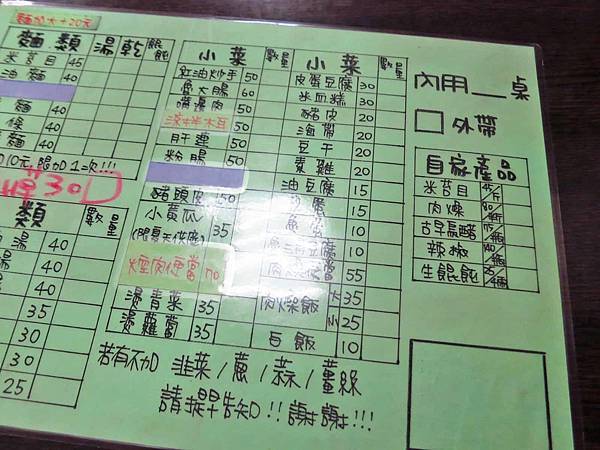 麵加大+20元
麵類 湯 乾 餛飩
米苔目 45
油麵 40
麵 40
條 40
麵 40
加10元 限加1次!!!
30
類 數量
湯 40
湯 40
40
30
30
25
小菜 數量
紅油炒手 50
魯大腸 60
嘴邊肉 50
涼拌木耳 50
肝連 50
粉腸 50
豬頭皮 50
小黃瓜 35
(限夏天供應)
焢肉便當 70
燙青菜 35
燙蘿蔔 35
小菜 數量
皮蛋豆腐 30
米血糕 30
豬皮 20
海帶 20
豆干 20
素雞 20
油豆腐 15
腐 15
10
豆腐 10
55
肉燥飯 大 35
小 25
白飯 10
內用__桌
□ 外帶
自家產品
米苔目 45/斤
肉燥
古早烏醋
辣椒
生餛飩
若有不加 韭菜/蔥/蒜/薑絲
請提早告知!!謝謝!!!